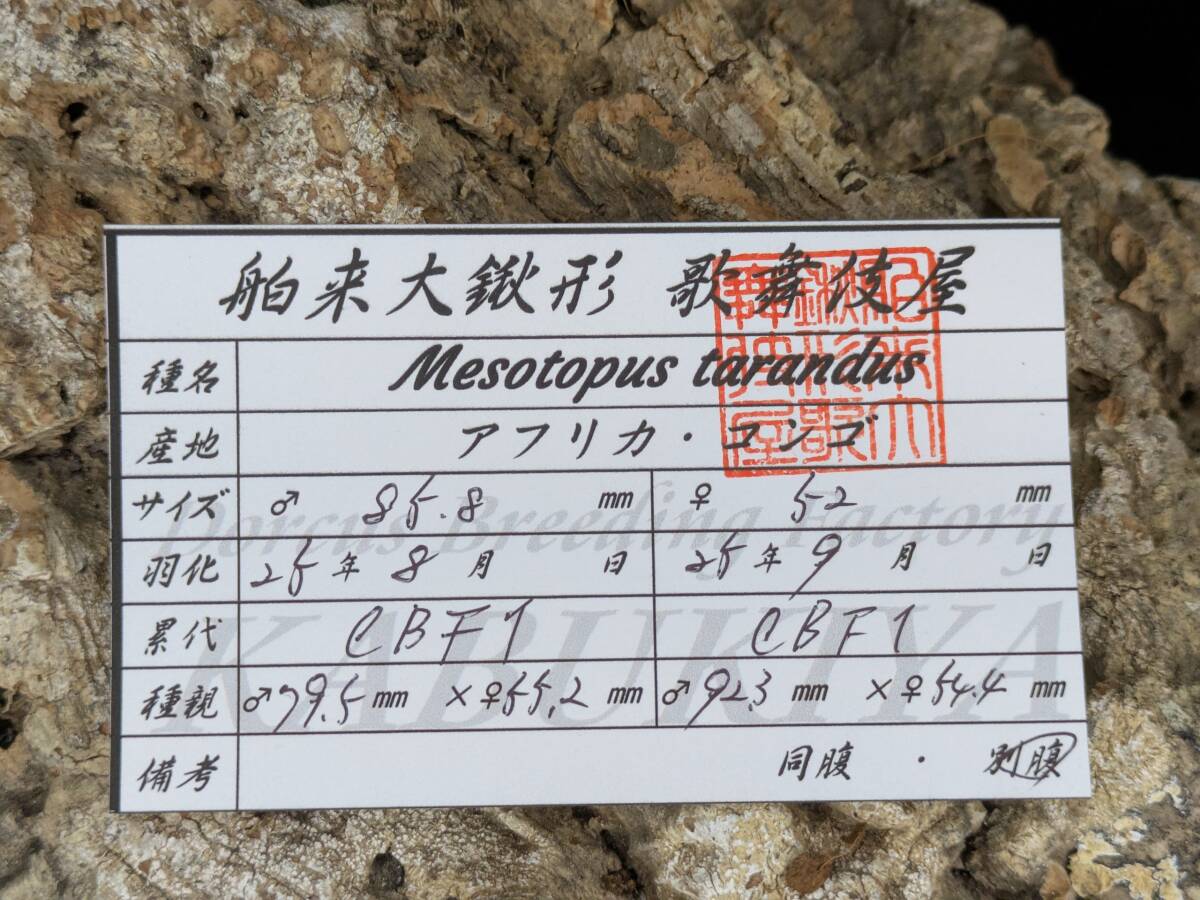 舶来大鍬形 歌舞伎屋
種名 Mesotopus tarandus
産地 アフリカ・コンゴ
サイズ ♂ 85.8 mm ♀ 52 mm
羽化 25年 8月 日 25年 9月 日
累代 CBF1 CBF1
種親 ♂79.5mm ×♀55.2mm ♂92.3mm ×♀54.4mm
備考 同腹 ・ 別腹
Dorcus Breeding Factory
KABUKIYA
舶来大鍬形歌舞伎屋